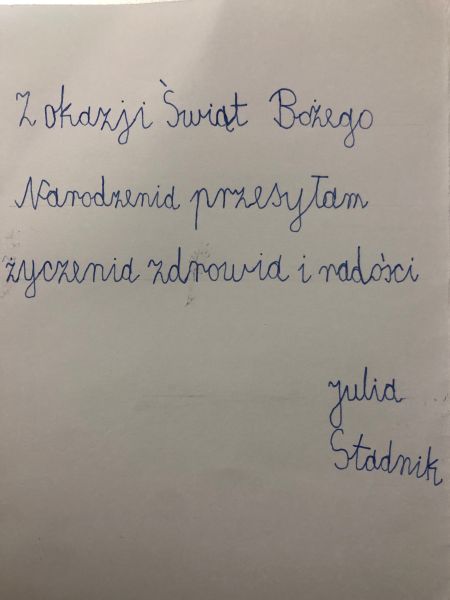 Z okazji Świąt Bożego
Narodzenia przesyłam
życzenia zdrowia i radości
Julia
Stadnik